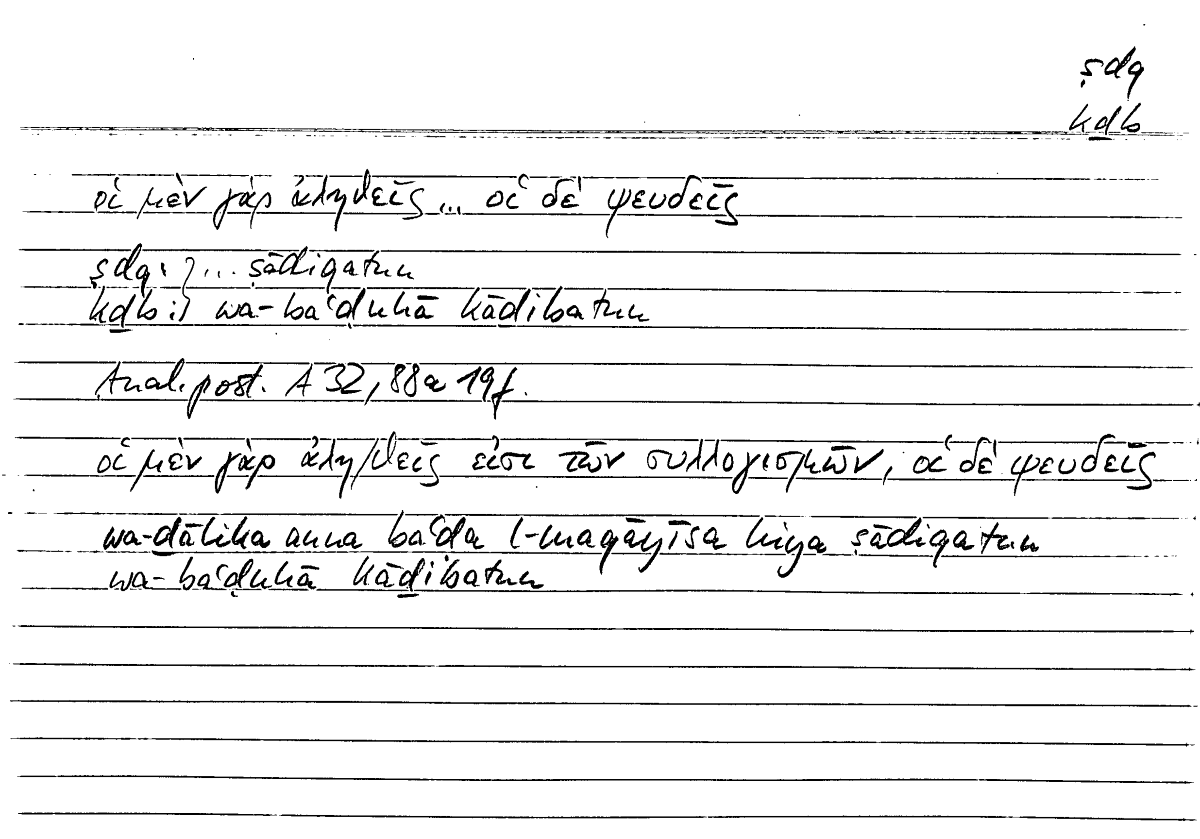 ṣdq
kḏb
οἱ μὲν γὰρ ἀληθεῖς ... οἱ δὲ ψευδεῖς
ṣdq: } ... ṣādiqatun
kḏb: } wa-baʿḍuhā kāḏibatun
Anal. post. A 32, 88a 19f.
οἱ μὲν γὰρ ἀλη/θεῖς εἰσι τῶν συλλογισμῶν, οἱ δὲ ψευδεῖς
wa-ḏālika anna baʿḍa l-maqāyīsa hiya ṣādiqatun
wa-baʿḍuhā kāḏibatun